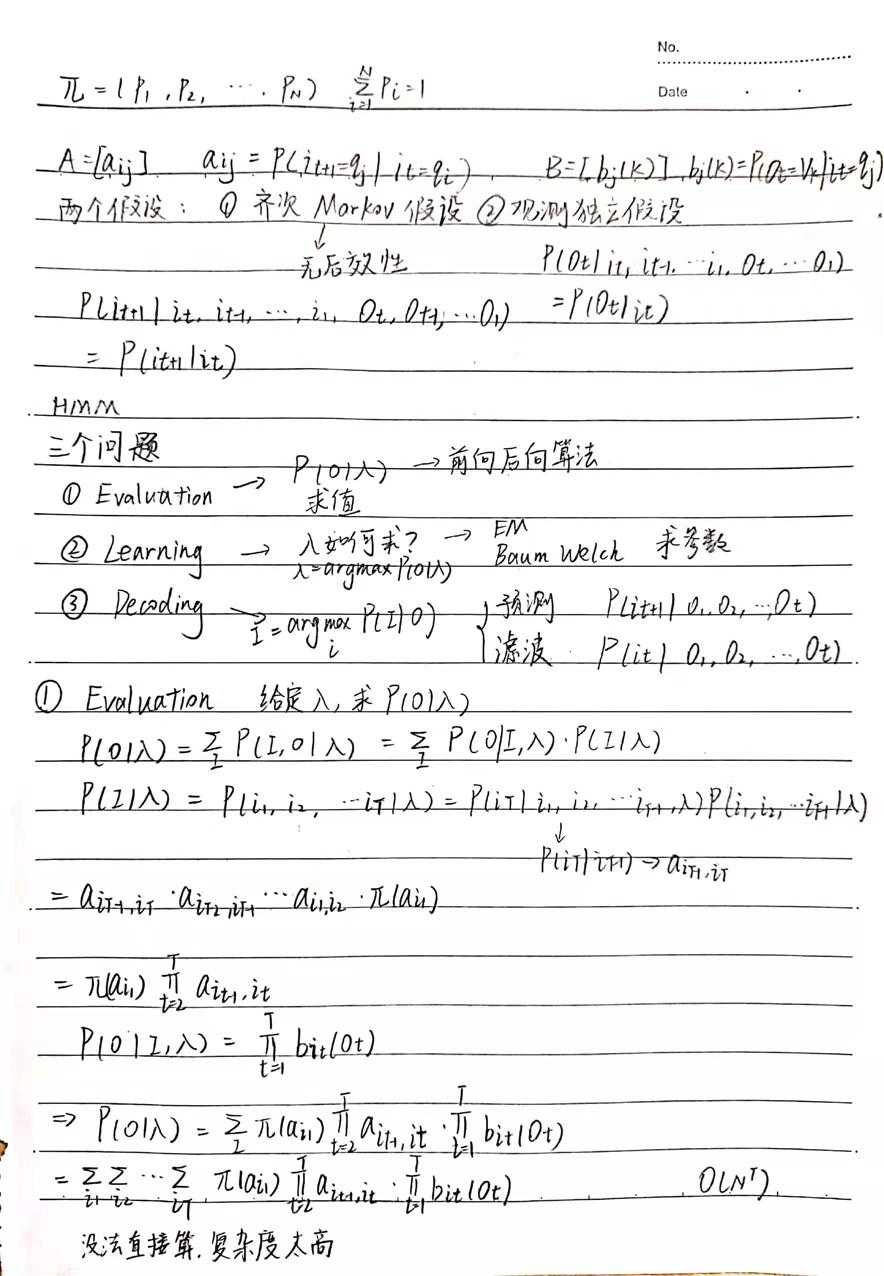 No.
Date
π = (P₁, P₂, ⋯, P_N) ∑_{i=1}^{N} Pi=1
A=[aij] aij = P(i_{t+1}=qj | it=qi) B=[bj(k)] bj(k)=P(Ot=Vk|it=qj)
两个假设: ① 齐次 Markov 假设 ② 观测独立假设
↓
无后效性 P(Ot|it, i_{t-1}, ⋯i₁, Ot, ⋯O₁)
P(i_{t+1} | it, i_{t-1}, ⋯, i₁, Ot, O_{t-1}, ⋯O₁) =P(Ot|it)
= P(i_{t+1}|it)
HMM
三个问题
① Evaluation → P(O|λ) → 前向后向算法
求值
② Learning → λ如何求? → EM
λ=argmax P(O|λ) Baum Welch 求参数
③ Decoding → I=argmax_i P(I|O) { 预测 P(i_{t+1} | O₁, O₂, ⋯, Ot)
滤波 P(it | O₁, O₂, ⋯, Ot)
① Evaluation 给定λ, 求 P(O|λ)
P(O|λ) = ∑_I P(I,O|λ) = ∑_I P(O|I,λ)·P(I|λ)
P(I|λ) = P(i₁, i₂, ⋯iT|λ) = P(iT|i₁, i₂, ⋯i_{T-1}, λ)P(i₁, i₂, ⋯i_{T-1}|λ)
↓
P(iT|i_{T-1}) → a_{i_{T-1}, iT}
= a_{i_{T-1}, iT} · a_{i_{T-2}, i_{T-1}} ⋯ a_{i₁, i₂} · π(ai₁)
= π(ai₁) ∏_{t=2}^{T} a_{i_{t-1}, it}
P(O|I,λ) = ∏_{t=1}^{T} bit(Ot)
⇒ P(O|λ) = ∑_I π(ai₁) ∏_{t=2}^{T} a_{i_{t-1}, it} · ∏_{t=1}^{T} bit(Ot)
= ∑_{i₁} ∑_{i₂} ⋯ ∑_{iT} π(ai₁) ∏_{t=2}^{T} a_{i_{t-1}, it} · ∏_{t=1}^{T} bit(Ot) O(N^T)
没法直接算, 复杂度太高